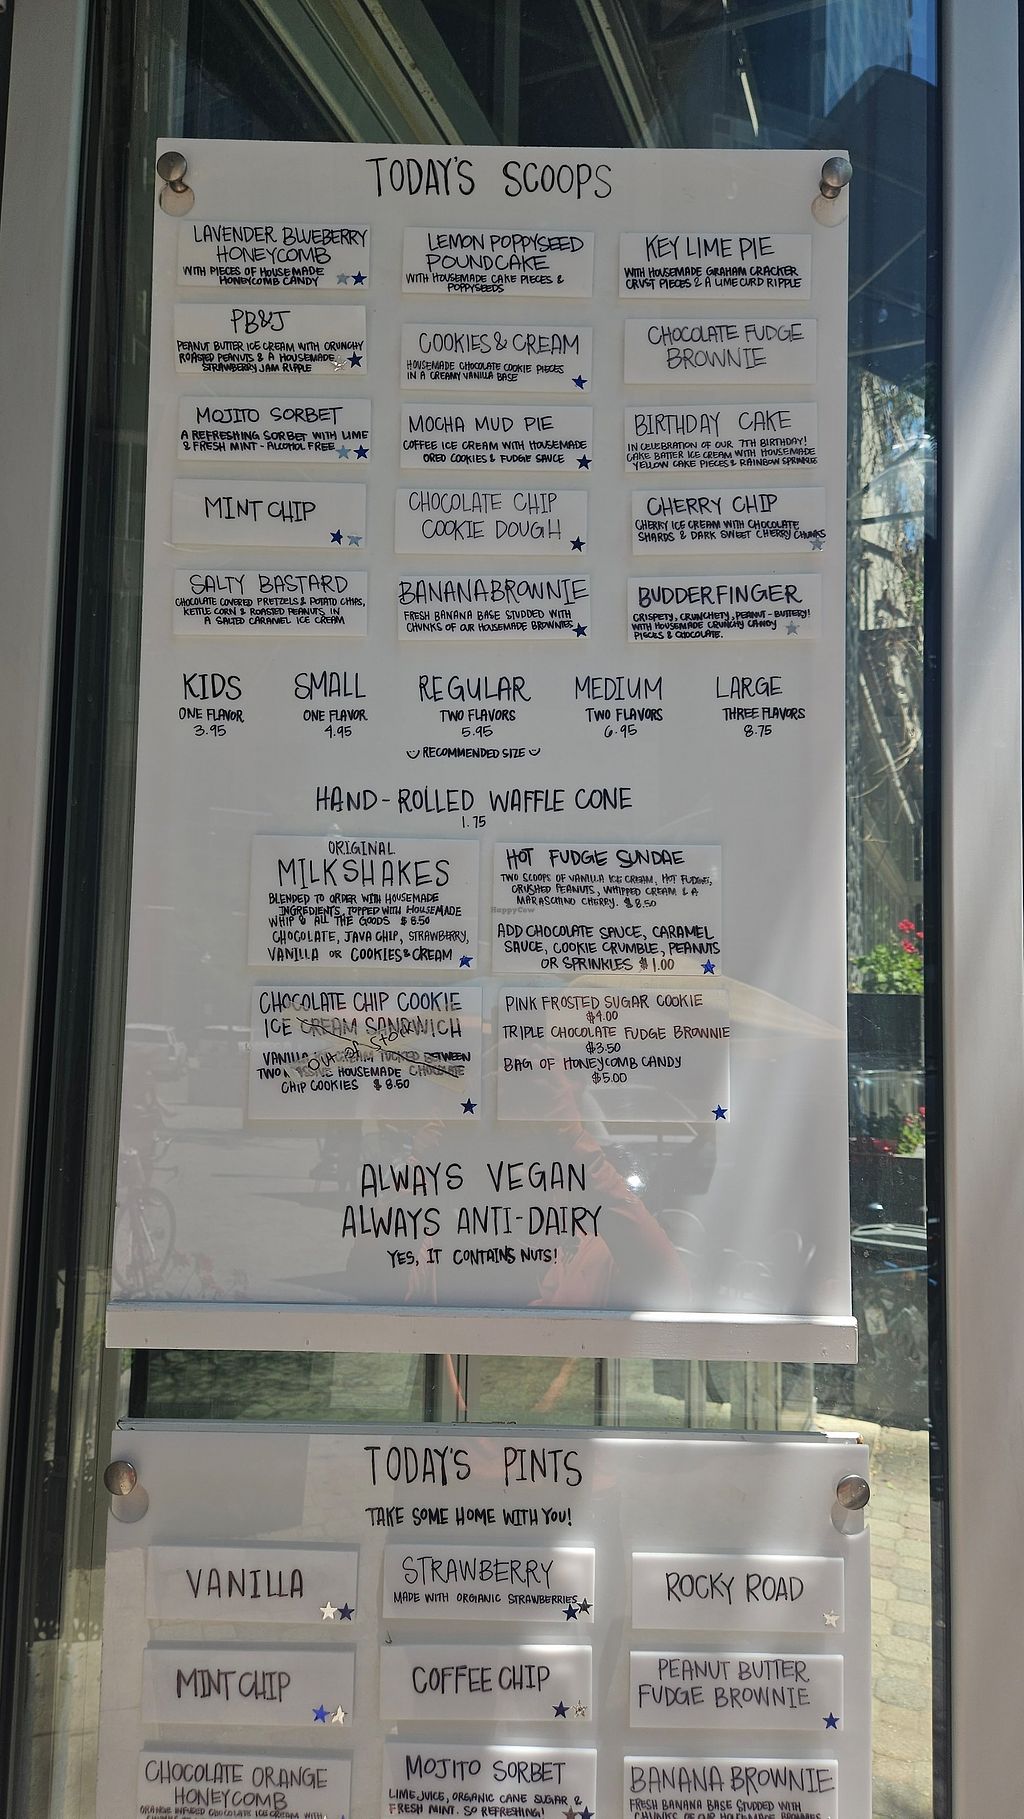 TODAY'S SCOOPS
LAVENDER BLUEBERRY
HONEYCOMB
WITH PIECES OF HOUSEMADE
HONEYCOMB CANDY
LEMON POPPYSEED
POUNDCAKE
WITH HOUSEMADE CAKE PIECES &
POPPYSEEDS
KEY LIME PIE
WITH HOUSEMADE GRAHAM CRACKER
CRUST PIECES & A LIME CURD RIPPLE
PB&J
PEANUT BUTTER ICE CREAM WITH CRUNCHY
ROASTED PEANUTS & A HOUSEMADE
STRAWBERRY JAM RIPPLE
COOKIES & CREAM
HOUSEMADE CHOCOLATE COOKIE PIECES
IN A CREAMY VANILLA BASE
CHOCOLATE FUDGE
BROWNIE
MOJITO SORBET
A REFRESHING SORBET WITH LIME
& FRESH MINT - ALCOHOL FREE
MOCHA MUD PIE
COFFEE ICE CREAM WITH HOUSEMADE
OREO COOKIES & FUDGE SAUCE
BIRTHDAY CAKE
IN CELEBRATION OF OUR 7TH BIRTHDAY!
CAKE BATTER ICE CREAM WITH HOUSEMADE
YELLOW CAKE PIECES & RAINBOW SPRINKLES
MINT CHIP
CHOCOLATE CHIP
COOKIE DOUGH
CHERRY CHIP
CHERRY ICE CREAM WITH CHOCOLATE
SHARDS & DARK SWEET CHERRY CHUNKS
SALTY BASTARD
CHOCOLATE COVERED PRETZELS & POTATO CHIPS,
KETTLE CORN & ROASTED PEANUTS IN
A SALTED CARAMEL ICE CREAM
BANANA BROWNIE
FRESH BANANA BASE STUDDED WITH
CHUNKS OF OUR HOUSEMADE BROWNIES
BUDDERFINGER
CRISPETY, CRUNCHETY, PEANUT-BUTTERY!
WITH HOUSEMADE CRUNCHY CANDY
PIECES & CHOCOLATE.
KIDS
ONE FLAVOR
3.95
SMALL
ONE FLAVOR
4.95
REGULAR
TWO FLAVORS
5.95
RECOMMENDED SIZE
MEDIUM
TWO FLAVORS
6.95
LARGE
THREE FLAVORS
8.75
HAND-ROLLED WAFFLE CONE
1.75
ORIGINAL
MILKSHAKES
BLENDED TO ORDER WITH HOUSEMADE
INGREDIENTS, TOPPED WITH HOUSEMADE
WHIP & ALL THE GOODS $8.50
CHOCOLATE, JAVA CHIP, STRAWBERRY,
VANILLA OR COOKIES & CREAM
HOT FUDGE SUNDAE
TWO SCOOPS OF VANILLA ICE CREAM, HOT FUDGE,
CRUSHED PEANUTS, WHIPPED CREAM & A
MARASCHINO CHERRY. $8.50
HappyCow
ADD CHOCOLATE SAUCE, CARAMEL
SAUCE, COOKIE CRUMBLE, PEANUTS
OR SPRINKLES $1.00
CHOCOLATE CHIP COOKIE
ICE CREAM SANDWICH
OUT OF STOCK
VANILLA ICE CREAM TUCKED BETWEEN
TWO HOUSEMADE CHOCOLATE
CHIP COOKIES $8.50
PINK FROSTED SUGAR COOKIE
$4.00
TRIPLE CHOCOLATE FUDGE BROWNIE
$3.50
BAG OF HONEYCOMB CANDY
$5.00
ALWAYS VEGAN
ALWAYS ANTI-DAIRY
YES, IT CONTAINS NUTS!
TODAY'S PINTS
TAKE SOME HOME WITH YOU!
VANILLA
STRAWBERRY
MADE WITH ORGANIC STRAWBERRIES
ROCKY ROAD
MINT CHIP
COFFEE CHIP
PEANUT BUTTER
FUDGE BROWNIE
CHOCOLATE ORANGE
HONEYCOMB
ORANGE INFUSED CHOCOLATE ICE CREAM WITH
MOJITO SORBET
LIME JUICE, ORGANIC CANE SUGAR &
FRESH MINT. SO REFRESHING!
BANANA BROWNIE
FRESH BANANA BASE STUDDED WITH
CHUNKS OF OUR HOUSEMADE BROWNIES